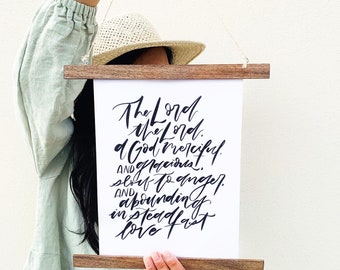 The Lord
the Lord,
a God merciful
AND gracious,
slow to anger,
AND abounding
in steadfast
love